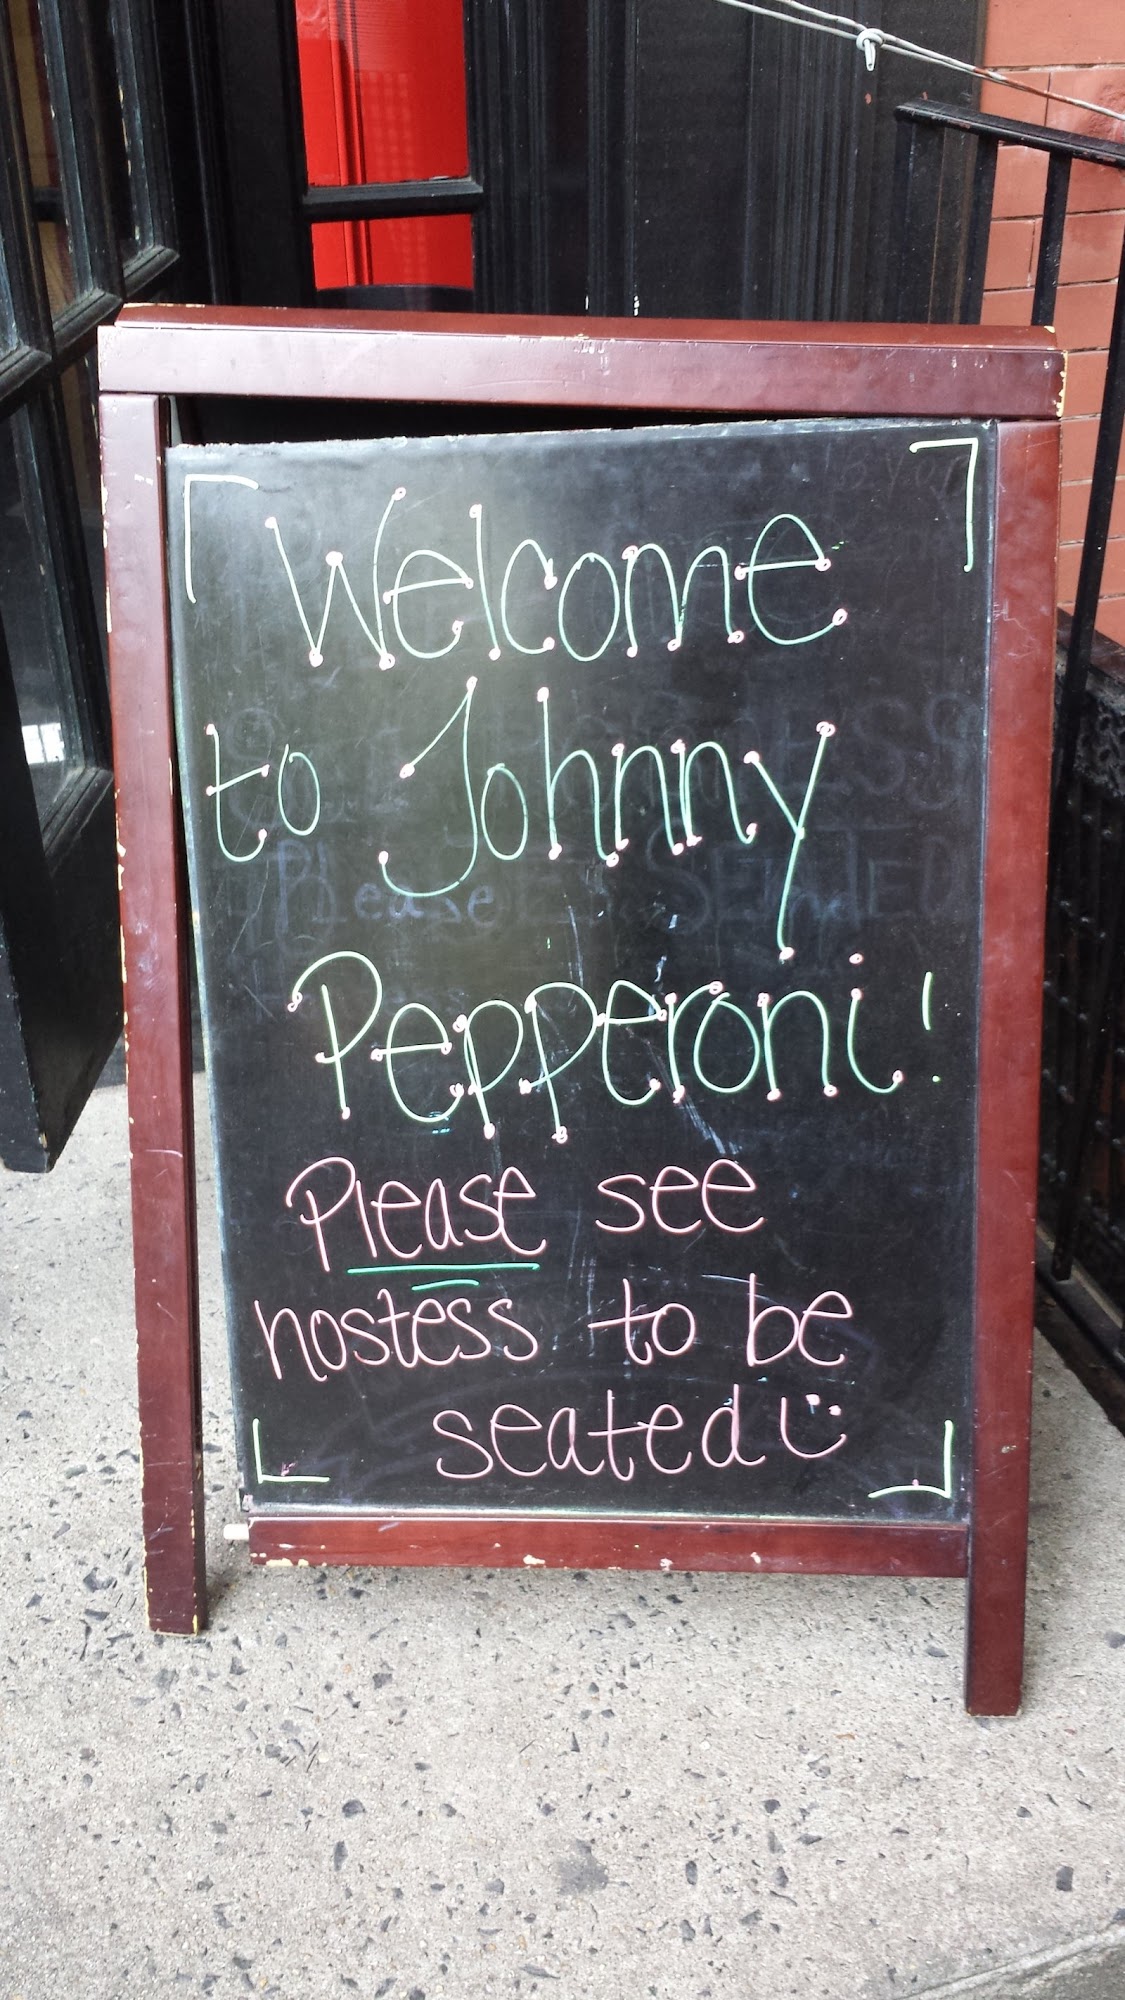 Welcome
to Johnny
Pepperoni!
Please see
hostess to be
seated